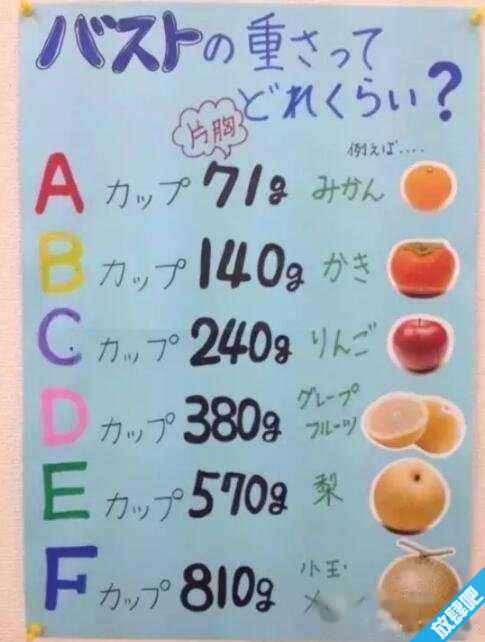 バストの重さって
どれくらい?
片胸
例えば....
Aカップ 71g みかん
Bカップ 140g かき
Cカップ 240g りんご
Dカップ 380g グレープ
フルーツ
Eカップ 570g 梨
Fカップ 810g 小玉
放肆吧